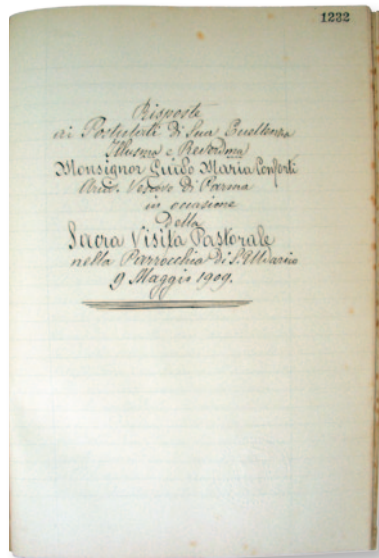 1232
Risposte
ai Postulati di Sua Eccellenza
Illusma e Revdma
Monsignor Guido Maria Conforti
Arciv. Vescovo di Parma
in occasione
della
Sacra Visita Pastorale
nella Parrocchia di S. Uldarico
9 Maggio 1909.